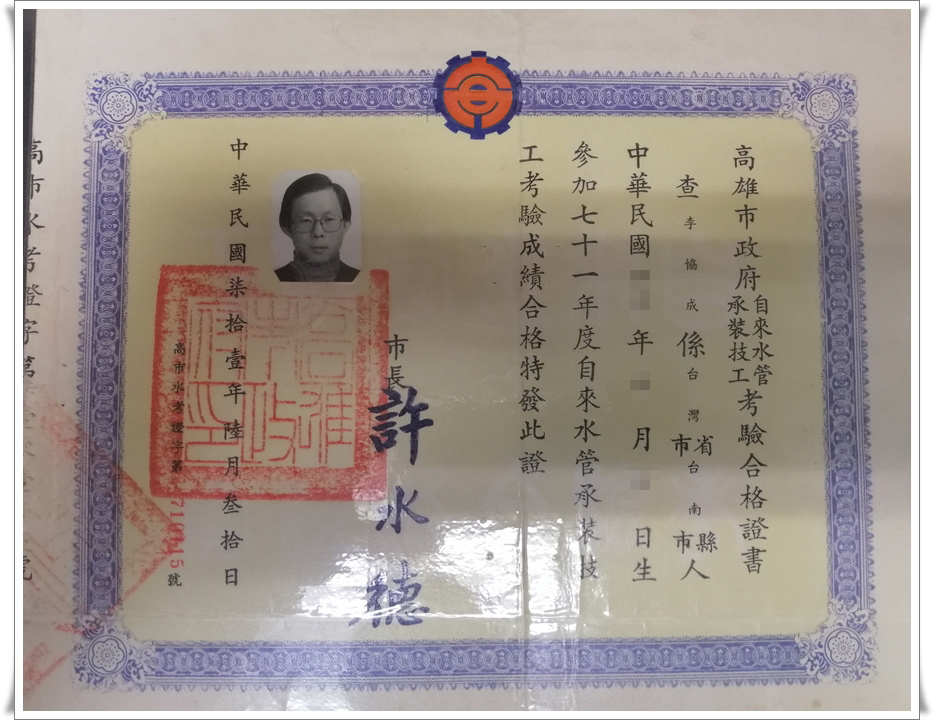 高雄市政府自來水管承裝技工考驗合格證書
查李協成係台灣省市台南縣市人
中華民國 年 月 日生
參加七十一年度自來水管承裝技
工考驗成績合格特發此證
市長許水德
中華民國柒拾壹年陸月叁拾日
高市水考證字第 號
高市水考證字第
高雄市政府印